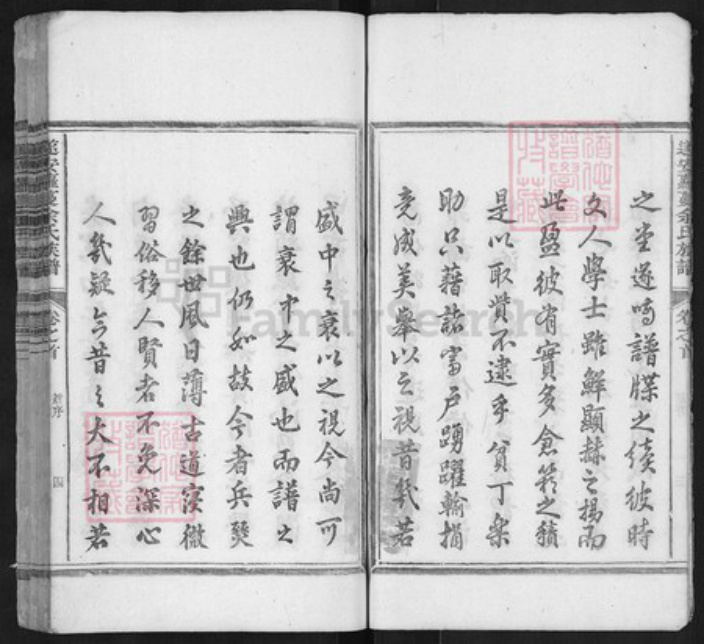 之堂遂為譜牒之續彼時
文人學士雖鮮顯赫之揚而
此盈彼有實多倉箱之積
是以取貲不逮乎貧丁樂
助只藉諸富戶踴躍輸捐
竟成美舉以之視昔幾若
盛中之衰以之視今尚可
謂衰中之盛也而譜之
興也仍如故今者兵燹
之餘世風日薄古道寖微
習俗移人賢者不免深心
人幾疑今昔之大不相若
余氏族譜
卷之首
序
四
FamilySearch